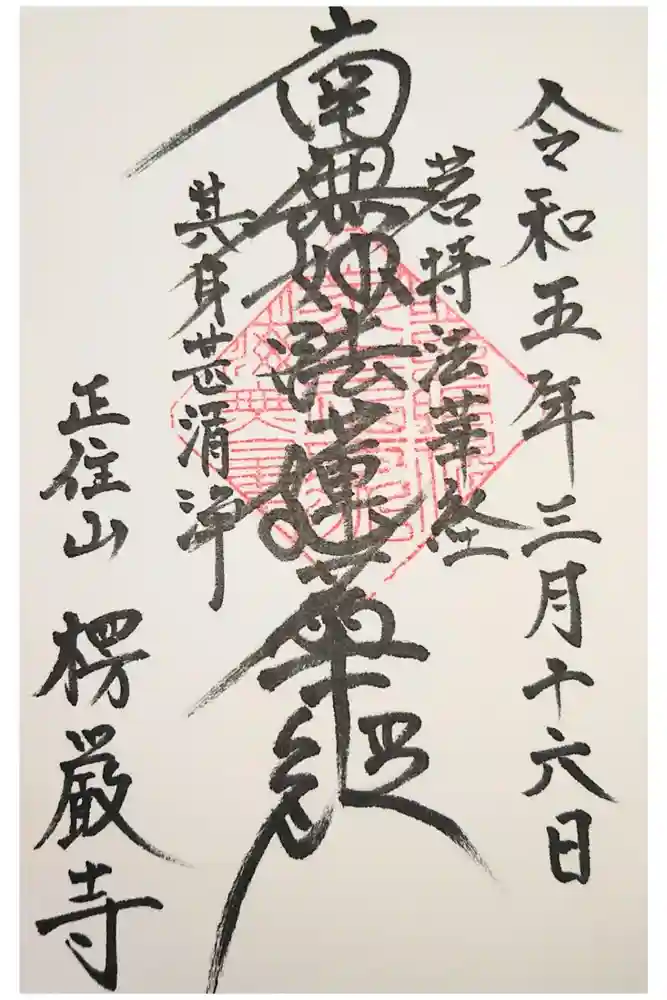 令和五年三月十六日
若持法華経
南無妙法蓮華経
其身甚清浄
正住山 楞厳寺